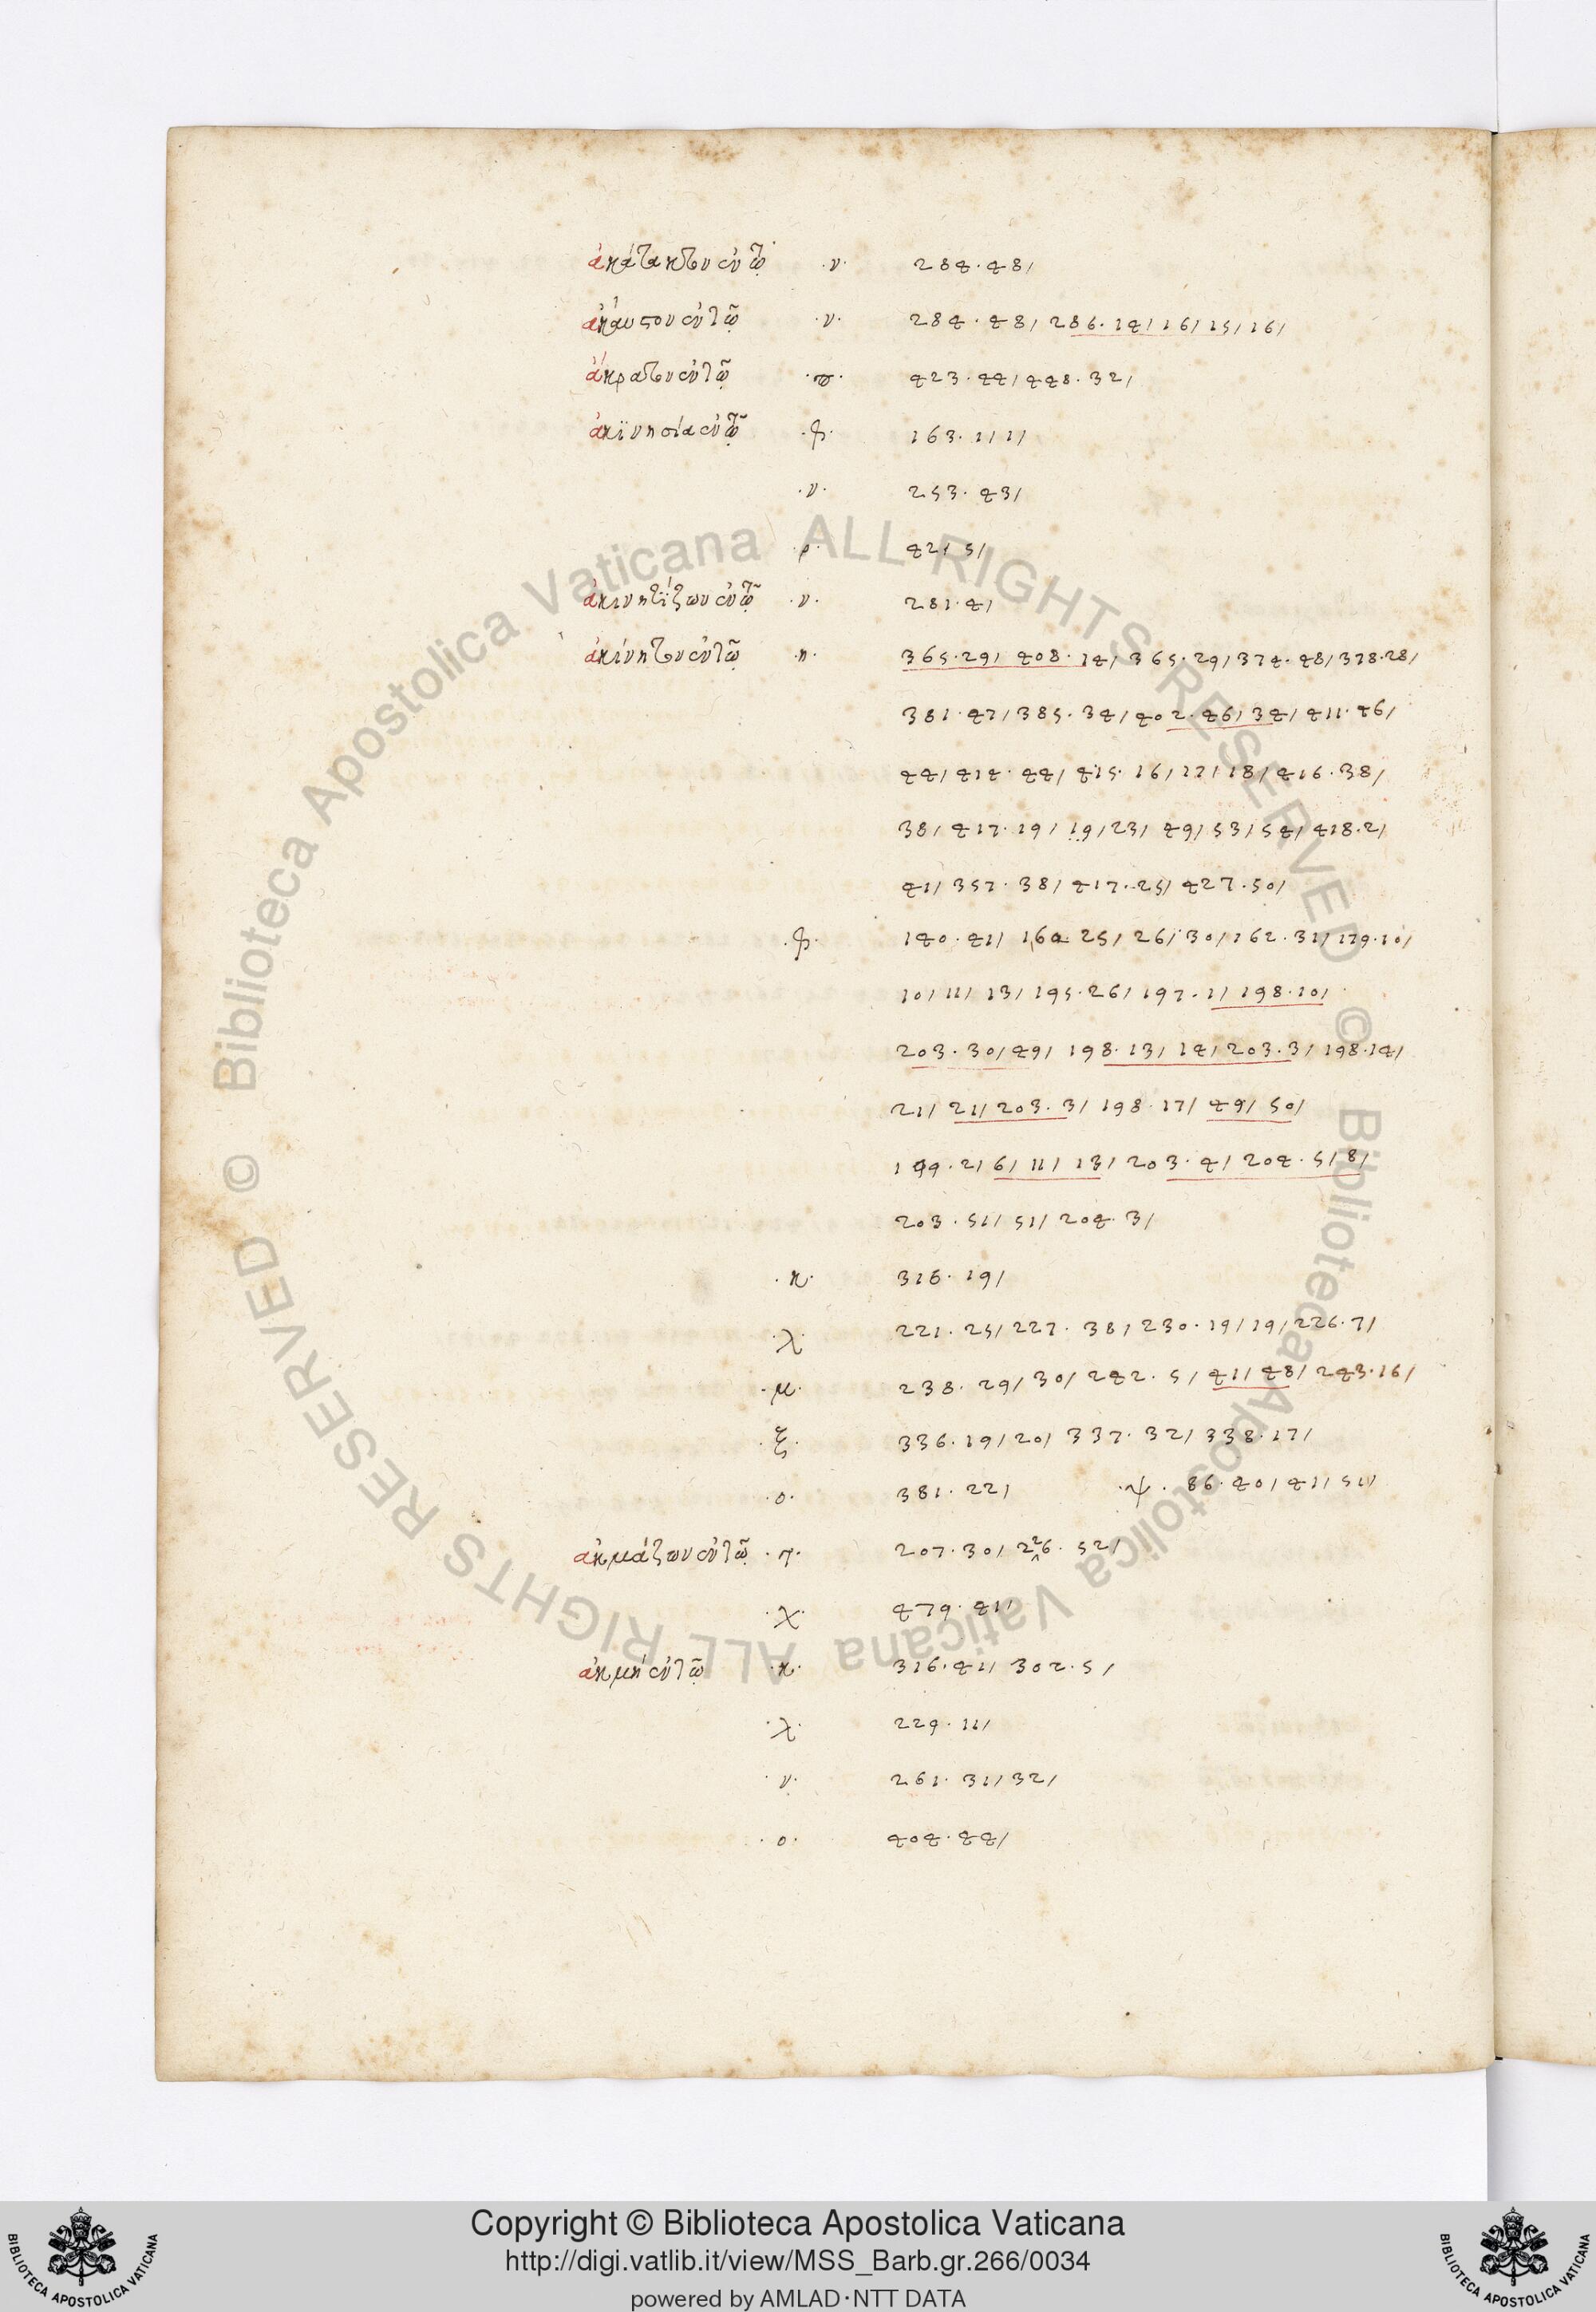 ἀκάτακτον ἐν τῷ ·ν· 284·48/
ἄκαυστον ἐν τῷ ·ν· 284·48/ 286·14/ 16/ 15/ 16/
ἄκρατον ἐν τῷ 423·44/ 448·32/
ἀκϊνησία ἐν τῷ ·φ· 163·1/ 1/
·ν· 253·43/
·ρ· 421 5/
ἀκινητΐζων ἐν τῷ ·ν· 281·4/
ἀκίνητον ἐν τῷ ·η· 365·29/ 408·14/ 365·29/ 374·48/ 378·28/
381·47/ 385·34/ 402·46/ 34/ 411·46/
44/ 414·44/ 415·16/ 17/ 18/ 416·38/
38/ 417·19/ 19/ 23/ 49/ 53/ 54/ 418·2/
41/ 357·38/ 417·25/ 427·50/
·φ· 140·41/ 160 25/ 26/ 30/ 162·31/ 179·10/
10/ 11/ 13/ 195·26/ 197·1/ 198·10/
203·30/ 49/ 198·13/ 14/ 203·3/ 198·14/
21/ 21/ 203·3/ 198·17/ 49/ 50/
199·2/ 6/ 11/ 13/ 203·4/ 204·5/ 8/
203·51/ 51/ 204·3/
·κ· 316·19/
·λ· 221·25/ 227·38/ 230·19/ 19/ 226·7/
·μ· 238·29/ 30/ 242·5/ 41/ 48/ 243·16/
·ξ· 336·19/ 20/ 337·32/ 338·17/
·ο· 381·22/ ·ψ· 86·40/ 41/ 51/
ἀκμάζων ἐν τῷ ·τ· 207·30/ 226·52/
·χ· 479·41/
ἀκμή ἐν τῷ ·κ· 316·41/ 302·5/
·λ· 229·11/
·ν· 261·31/ 32/
·ο· 404·44/
Copyright © Biblioteca Apostolica Vaticana
http://digi.vatlib.it/view/MSS_Barb.gr.266/0034
powered by AMLAD·NTT DATA
BIBLIOTECA APOSTOLICA VATICANA
BIBLIOTECA APOSTOLICA VATICANA
© Biblioteca Apostolica Vaticana ALL RIGHTS RESERVED
© Biblioteca Apostolica Vaticana ALL RIGHTS RESERVED